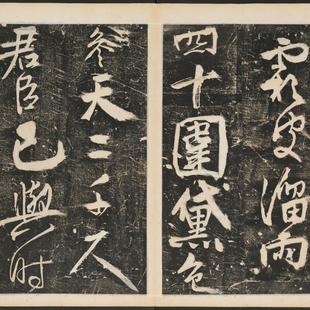 霜皮溜雨
四十圍黛色
參天二千尺
君臣已與時